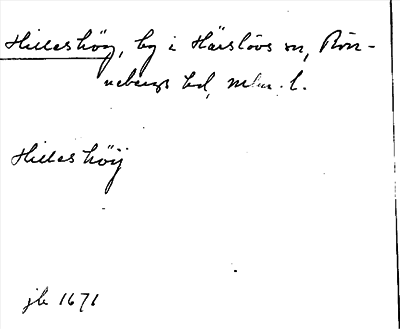 Hilleshög, by i Härslövs sn, Rön-
nebergs hd, Mlm. l.
Hilleshöÿ
jb 1671